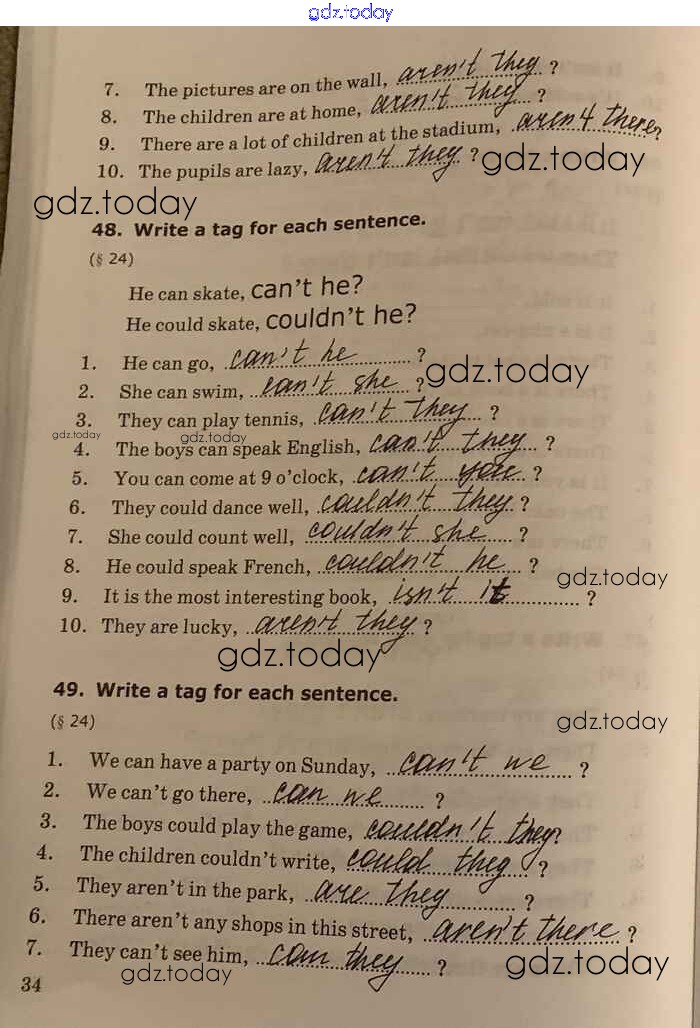 gdz.today
7. The pictures are on the wall, aren't they ?
8. The children are at home, aren't they ?
9. There are a lot of children at the stadium, aren't there?
10. The pupils are lazy, aren't they ?
gdz.today
gdz.today
48. Write a tag for each sentence.
(§ 24)
He can skate, can't he?
He could skate, couldn't he?
1. He can go, can't he ?
gdz.today
2. She can swim, can't she ?
3. They can play tennis, can't they ?
gdz.today
gdz.today
4. The boys can speak English, can't they ?
5. You can come at 9 o'clock, can't you ?
6. They could dance well, couldn't they ?
7. She could count well, couldn't she ?
8. He could speak French, couldn't he ?
gdz.today
9. It is the most interesting book, isn't it ?
10. They are lucky, aren't they ?
gdz.today
49. Write a tag for each sentence.
(§ 24)
gdz.today
1. We can have a party on Sunday, can't we ?
2. We can't go there, can we ?
3. The boys could play the game, couldn't they?
4. The children couldn't write, could they ?
5. They aren't in the park, are they ?
6. There aren't any shops in this street, aren't there ?
7. They can't see him, can they ?
gdz.today
gdz.today
34